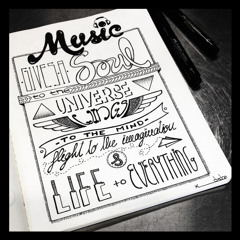 Music
GIVES A Soul
to the
UNIVERSE
WINGS
TO THE MIND
flight to the imagination
&
LIFE to EVERYTHING